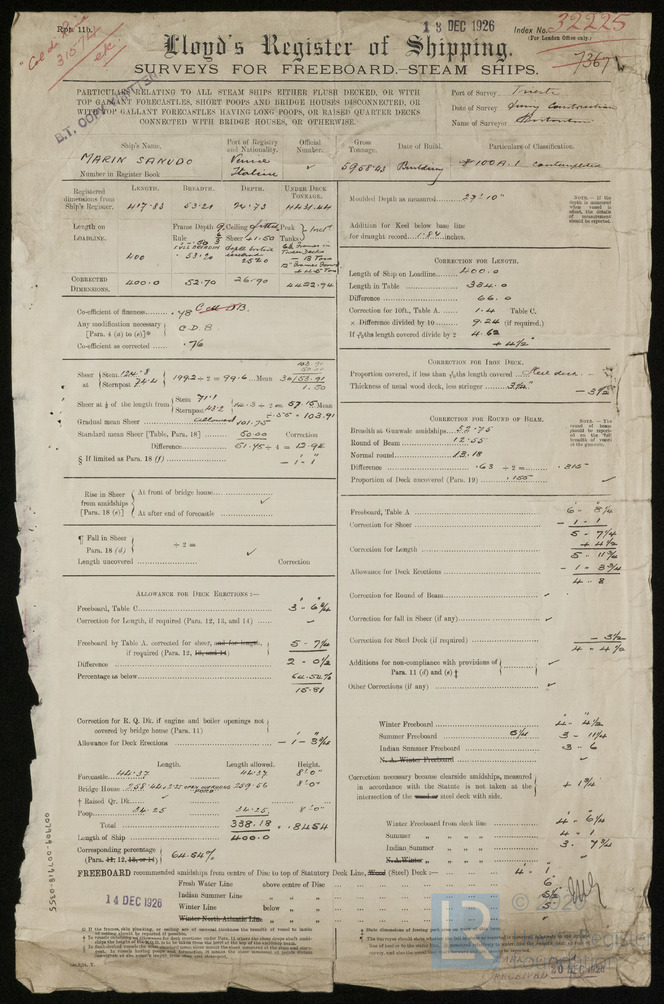 Rpt. 11b.
13 DEC 1926
Index No. 32225
(For London Office only.)
Lloyd's Register of Shipping.
7367
SURVEYS FOR FREEBOARD.—STEAM SHIPS.
PARTICULARS RELATING TO ALL STEAM SHIPS EITHER FLUSH DECKED, OR WITH
TOP GALLANT FORECASTLES, SHORT POOPS AND BRIDGE HOUSES DISCONNECTED, OR
WITH TOP GALLANT FORECASTLES HAVING LONG POOPS, OR RAISED QUARTER DECKS
CONNECTED WITH BRIDGE HOUSES, OR OTHERWISE.
Port of Survey Trieste
Date of Survey During Construction
Name of Surveyor
Ship's Name. Port of Registry and Nationality. Official Number. Gross Tonnage. Date of Build. Particulars of Classification.
MARIN SANUDO Venice Italian 5958.43 Building 100 A.1 contemplated
Number in Register Book
Registered dimensions from Ship's Register. LENGTH. BREADTH. DEPTH. UNDER DECK TONNAGE.
417.83 53.21 4431.44
Length on LOADLINE. 400 Frame Depth Ceiling fitted Peak Tanks
53.20
CORRECTED DIMENSIONS. 400.0 52.70 26.90 4422.94
Co-efficient of fineness .78
Any modification necessary [Para. 4 (a) to (e)]* C.D.B
Co-efficient as corrected .76
Sheer at Stem 124.8 Sternpost 74.4 199.2 ÷ 2 = 99.6 Mean
Sheer at ⅛ of the length from Stem 71.1 Sternpost 43.2 114.3 ÷ 2 = 57.15 Mean
÷ .55 = 103.91
Gradual mean Sheer allowed 101.75
Standard mean Sheer [Table, Para. 18] 50.00 Correction
Difference 51.75 ÷ 4 = 12.94
§ If limited as Para. 18 (f) - 1 - 1
Rise in Sheer from amidships [Para. 18 (e)] At front of bridge house
At after end of forecastle
¶ Fall in Sheer Para. 18 (d) ÷ 2 =
Length uncovered Correction
ALLOWANCE FOR DECK ERECTIONS :—
Freeboard, Table C 3 - 6¾
Correction for Length, if required (Para. 12, 13, and 14)
Freeboard by Table A. corrected for sheer, and for length, if required (Para. 12, 13, and 14) 5 - 7¼
Difference 2 - 0½
Percentage as below 64.54%
15.81
Correction for R. Q. Dk. if engine and boiler openings not covered by bridge house (Para. 11)
Allowance for Deck Erections - 1 - 3¾
Length. Length allowed. Height.
Forecastle 44.37 44.37 8'0"
Bridge House 258.44 259.56 8'0"
† Raised Qr. Dk.
Poop 34.25 34.25 8'0"
Total 338.18 = .8454
Length of Ship 400.0
Corresponding percentage (Para. 11, 12, 13, or 14) 64.54%
Moulded Depth as measured 29'10"
NOTE.—If the depth is measured when vessel is afloat, the details of measurement should be reported.
Addition for Keel below base line for draught record 1.84 inches.
CORRECTION FOR LENGTH.
Length of Ship on Loadline 400.0
Length in Table 334.0
Difference 66.0
Correction for 10ft., Table A. 1.4 Table C.
× Difference divided by 10 9.24 (if required.)
If 6/10ths length covered divide by 2 4.62
+ 4½"
CORRECTION FOR IRON DECK.
Proportion covered, if less than 7/10ths length covered Steel deck
Thickness of usual wood deck, less stringer 3½" - 3½
CORRECTION FOR ROUND OF BEAM.
Breadth at Gunwale amidships 52.75
Round of Beam 12.55
Normal round 13.18
Difference .63 ÷ 2 = .315
Proportion of Deck uncovered (Para. 19) .155
NOTE.—The round of beam should be reported on the full breadth of vessel at the gunwale.
Freeboard, Table A 6 - 8¼
Correction for Sheer - 1 - 1
5 - 7¼
Correction for Length + 4½
5 - 11¾
Allowance for Deck Erections - 1 - 3¾
4 - 8
Correction for Round of Beam
Correction for fall in Sheer (if any)
Correction for Steel Deck (if required) - 3½
4 - 4½
Additions for non-compliance with provisions of Para. 11 (d) and (e) †
Other Corrections (if any)
Winter Freeboard 4 - 4½
Summer Freeboard 3 - 11¼
Indian Summer Freeboard 3 - 6
N. A. Winter Freeboard
Correction necessary because clearside amidships, measured in accordance with the Statute is not taken at the intersection of the wood or steel deck with side. + 1¾
Winter Freeboard from deck line 4 - 6¼
Summer 4 - 1
Indian Summer 3 - 7¾
N.A. Winter
FREEBOARD recommended amidships from centre of Disc to top of Statutory Deck Line, Wood (Steel) Deck :— 4 - 1
Fresh Water Line above centre of Disc 6
Indian Summer Line 5¼
Winter Line below
Winter North Atlantic Line
14 DEC 1926
20 DEC 1926
007909-007918-0355